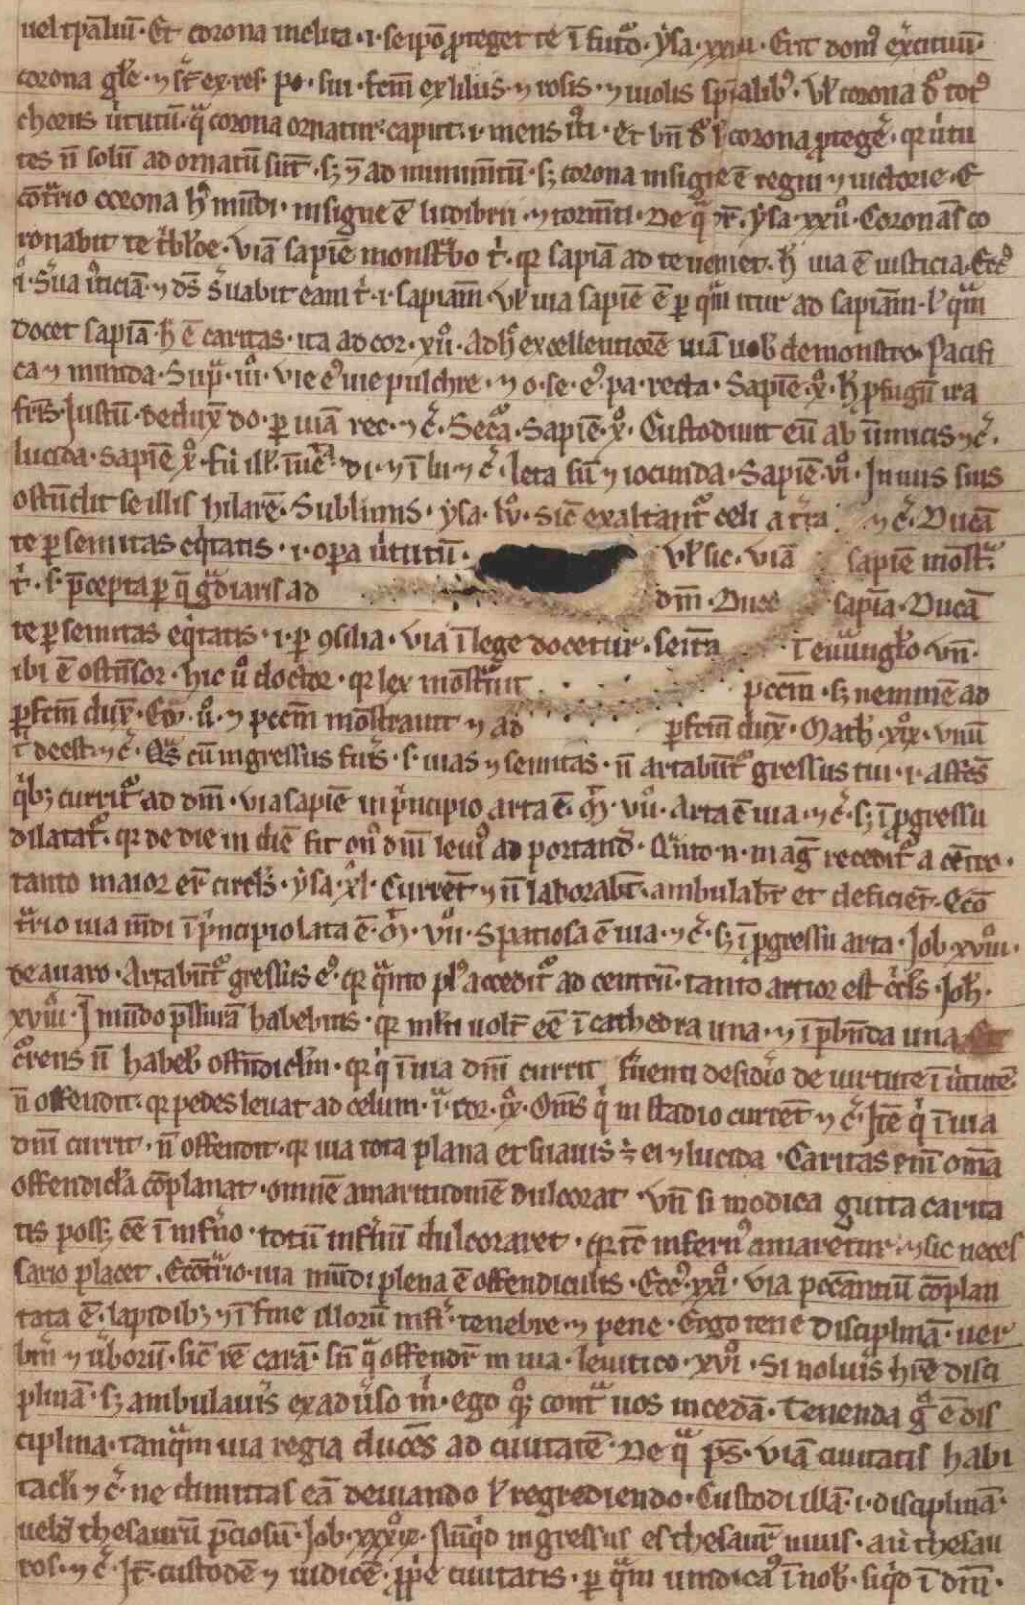 uel tp̄aliū · Et corona inclita · i · seip̄o ꝓteget te ī fut̄o · ysa · xxviii · Erit dom̄ exc̄ituū
corona gl̄e · ⁊ sic̄ ex res · po · sui · fcm̄ ex liliis ⁊ rosis · ⁊ uiolis sp̄ialib⁹ · ul̄ corona d̄r tot⁹
chorus uirtutū · q̄ corona ornatur caput · i · mens · Et bn̄ d̄r corona ꝓtege͛ · qr uirtu
tes n̄ solū ad ornatū sūt · sꝫ ⁊ ad munimtū · sꝫ corona insigne ē regni ⁊ uictorie · E
cōtrio corona h⁹ mūdi · insigne ē ludibrii · ⁊ tormti · De q̄ · ysa · xxii · Coronās co
ronabit te tribl̄oe · Viā sapiē monstbo t · qr sapiā ad te ueniet · h̄ uia ē iusticia · Ecc⁹
i · Sua iticiā · ⁊ ds̄ suabit eam t · i · sapiam̄ · ul̄ uia sapiē ē ꝑ qm̄ itur ad sapiam̄ · l qm̄
docet sapiā · h̄ ē caritas · ita ad cor · xii · Adh⁹ excellentiorē uiā uob̄ demonstro · Pacifi
ca ⁊ munda · Sup̄ · iii · vie e⁹ uie pulchre · ⁊ o · se · e⁹ · pa · recta · Sapiē · x · h̄ ꝓfugū ira
fris · Justū · deduxͭ do · ꝑ uiā rec · ⁊ c̄ · Sec̄a · Sapiē · x · Custodiuit eū ab inimicis ⁊ c̄ ·
lucida · Sapiē x · di · ⁊ ī lu · ⁊ c̄ · leta sū ⁊ iocunda · Sapiē · vi · In uiis suis
ostēdit se illis hilarē · Sublimis · ysa · lv · Sic̄ exaltant celi a tra ⁊ c̄ · Ducā
te ꝑ semitas eq̄tatis · i · opa uirtutū · ul̄ sic · viā sapiē mōst
t · s · p̄cepta ꝑ q̄ gdiaris ad dm̄ · Duce sapīa · Ducā
te ꝑ semitas eq̄tatis · i · ꝑ ꝯsilia · via ī lege docetur · semta ī euungl̄o · vn̄ ·
ibi ē ostēsor · hic u doctor · qr lex mōstauit pccm̄ · sꝫ neminē ad
ꝑfcm̄ duxͭ · Ew̄ · u · ⁊ pccm̄ mōstrauit ⁊ ad ꝑfcm̄ duxͭ · Math̄ · xix · vnū
t deest ⁊ c̄ · Qs̄ cū ingressus fuis · s · uias ⁊ semitas · n̄ artabūt gressus tui · i · affcs̄
qbꝫ currit ad dm̄ · via sapiē in p̄ncipio arta ē · M · vii · Arta ē uia · ⁊ c̄ · sꝫ ī ꝓgressu
dilatat · qr de die in diē fit on⁹ dm̄ leui⁹ ad portand · Qnto · n · mag recedit a cētro ·
tanto maior er circls · ysa · xl · Currēt ⁊ n̄ laborabt · ambulabt et deficiēt · Ecō
trio uia mdi ī p̄ncipio lata ē · M · vii · Spatiosa ē uia · ⁊ c̄ · sꝫ ī ꝓgressu arta · Job xviii ·
de auaro · Artabūt gressus e⁹ · qr q̄nto pl⁹ accedit ad centrū · tanto artior est circls · Joh ·
xviii · I mūdo p̄ssurā habebitis · qr multi uolt eē ī cathedra una · ⁊ ī p̄bnda una Et
crens n̄ habeb offendiclm̄ · qr q ī uia dm̄ currit fuenti desidio de uirtute ī uirtutē
n̄ offendit · qr pedes leuat ad celum · i · cor · ix · Oms̄ q in stadio currēt ⁊ c̄ · Itē q ī uia
dm̄ currit · n̄ offendit · qr uia tota plana et suauis ÷ ei ⁊ lucida · Caritas eni omā
offendicla cōplanat · omnē amaritudinē dulcorat · vn̄ si modica gutta carita
tis possꝫ eē ī inferno · totū infernū dulcoraret · qr tc̄ infern⁹ amaretur ⁊ sic neces
sario placet · Ecōtrio uia mūdi plena ē offendiculis · Ecc⁹ · xxi · via pccantiū cōplan
tata ē · lapidibꝫ · ⁊ ī fine illorū infi · tenebre · ⁊ pene · Ergo tene disciplinā · uer
bm̄ ⁊ uborū · sic rē carā · sn̄ q offendr in uia · leuitico · xvi · Si noluis hre disci
plinā · sꝫ ambulauis ex aduso m · ego qꝫ cont uos incedā · Tenenda g ē dis
ciplina · tanqm̄ uia regia ducēs ad ciuitatē · De q̄ ps̄ · viā ciuitatis habi
tacli ⁊ c̄ · ne dimittas eā deuiando l regrediendo · Custodi illā · i · disciplinā ·
uelud thesaurū p̄ciosū · Job · xxxviii · Nūqd ingressus es thesaur niuis · aū thesau
ros · ⁊ c̄ · It̄ · custodē ⁊ iudicē · ꝓpe ciuitatis · ꝑ qm̄ uindica⁹ ī nob · siqd ī dm̄ ·